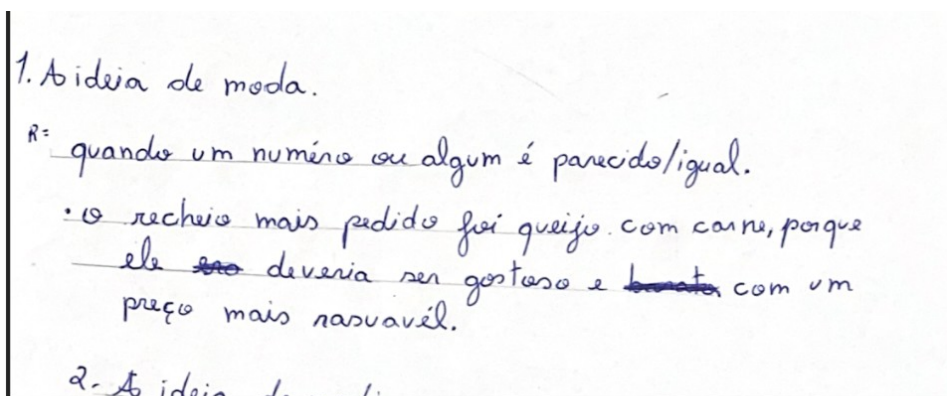 1. A ideia de moda.
R= quando um numéro ou algum é parecido/igual.
• o recheio mais pedido foi queijo com carne, porque
ele deveria ser gostoso e com um
preço mais rasuavél.
2. A ideia de